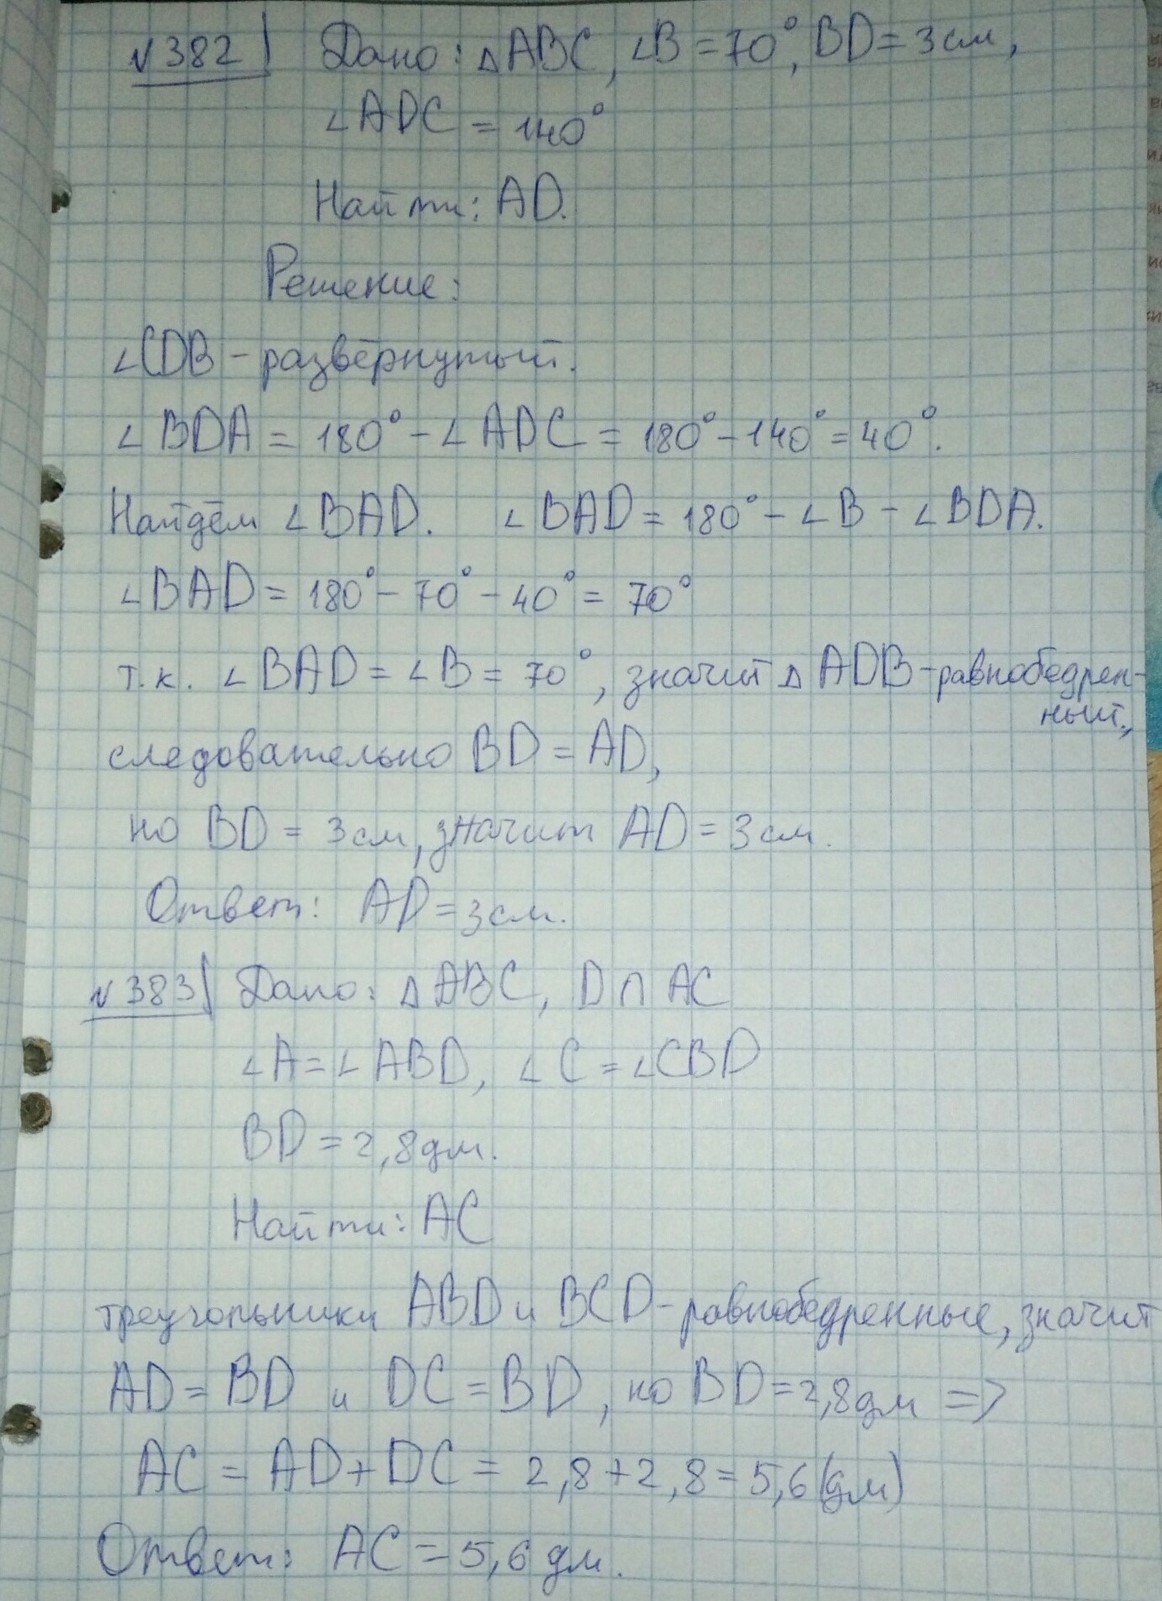 №382 Дано: △ABC, ∠B = 70°, BD = 3 см,
∠ADC = 140°
Найти: AD.
Решение:
∠CDB – развёрнутый.
∠BDA = 180° – ∠ADC = 180° – 140° = 40°.
Найдём ∠BAD. ∠BAD = 180° – ∠B – ∠BDA.
∠BAD = 180° – 70° – 40° = 70°
т.к. ∠BAD = ∠B = 70°, значит △ADB – равнобедрен-
ный,
следовательно BD = AD,
но BD = 3 см, значит AD = 3 см.
Ответ: AD = 3 см.
№383 Дано: △ABC, D ∩ AC
∠A = ∠ABD, ∠C = ∠CBD
BD = 2,8 дм.
Найти: AC
треугольники ABD и BCD – равнобедренные, значит
AD = BD и DC = BD, но BD = 2,8 дм =>
AC = AD + DC = 2,8 + 2,8 = 5,6 (дм)
Ответ: AC = 5,6 дм.